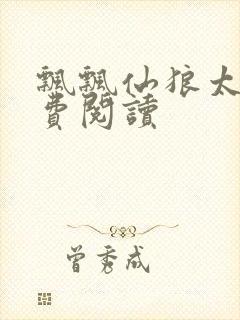 飄飄仙狼太
費閱讀
曾秀成